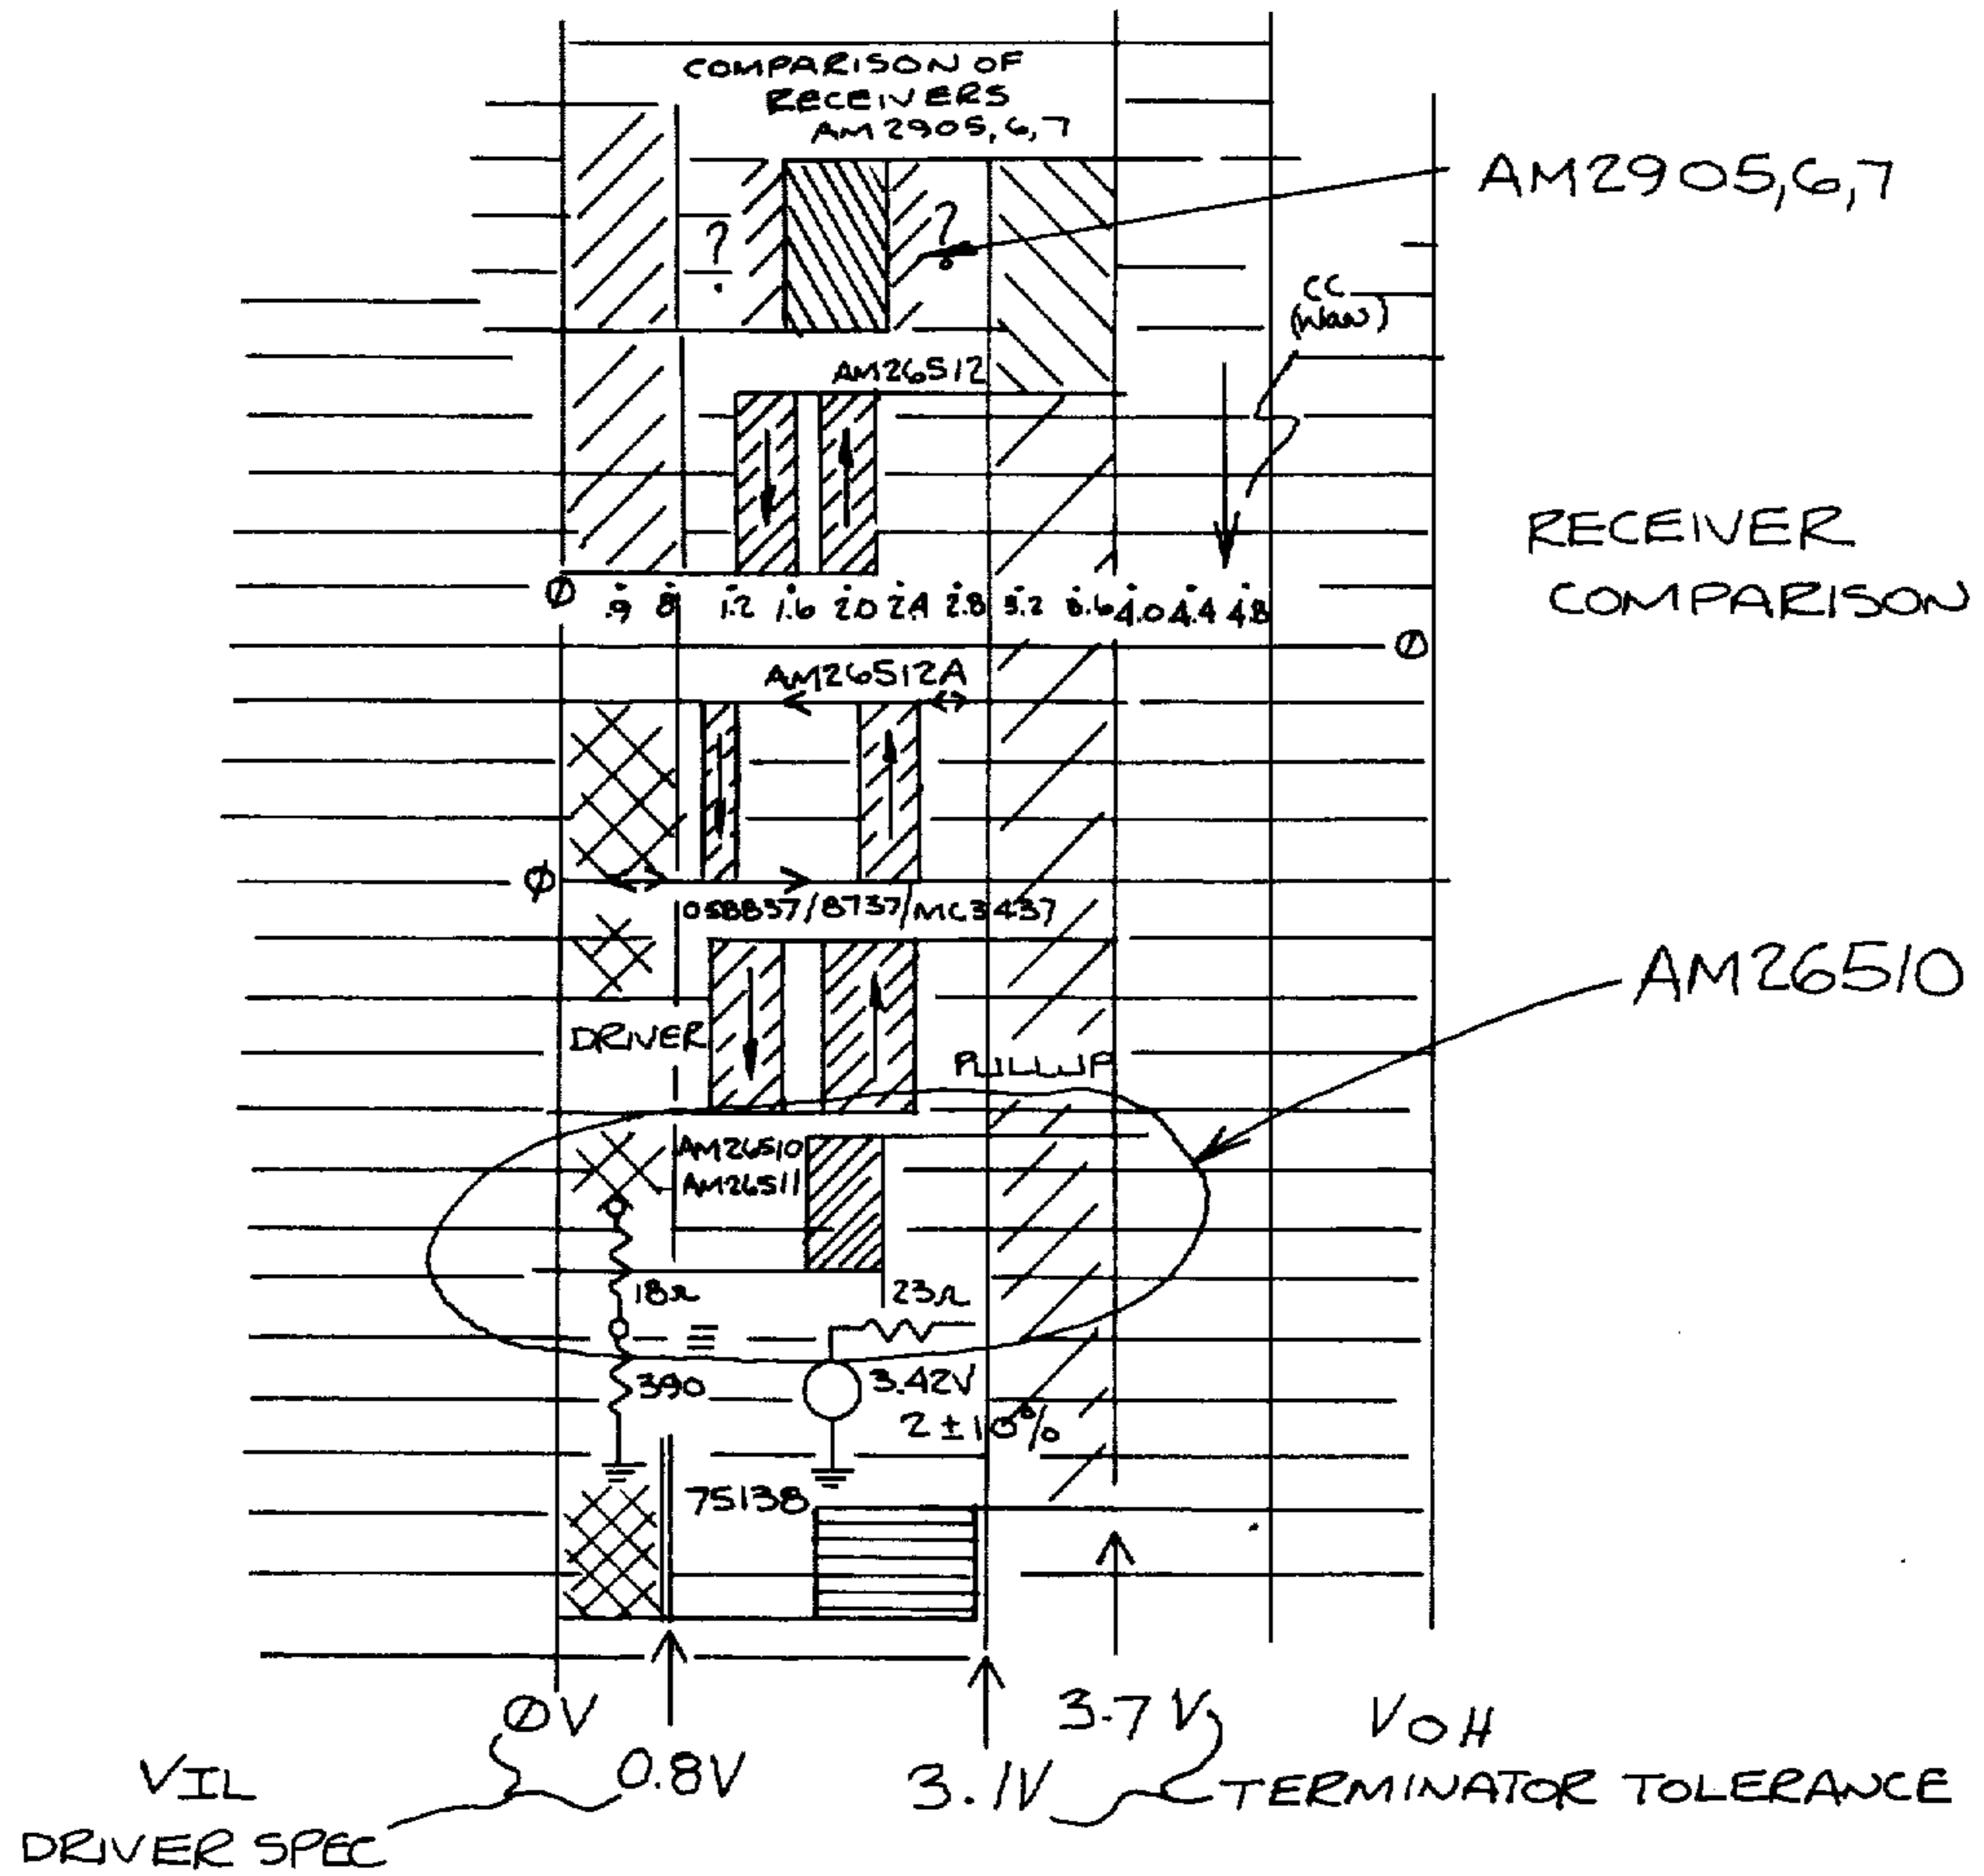 COMPARISON OF
RECEIVERS
AM2905,6,7
AM2905,6,7
?
?
CC
AM26S12
RECEIVER
COMPARISON
Ø .9 8 1.2 1.6 2.0 2.4 2.8 3.2 3.6 4.0 4.4 4.8
Ø
AM26S12A
Ø
DS8837/8737/MC3437
AM26S10
DRIVER
PULLUP
AM26S10
AM26S11
18Ω
23Ω
390
3.42V
2 ±10%
75138
ØV
3.7V
VOH
VIL
0.8V
3.1V
TERMINATOR TOLERANCE
DRIVER SPEC